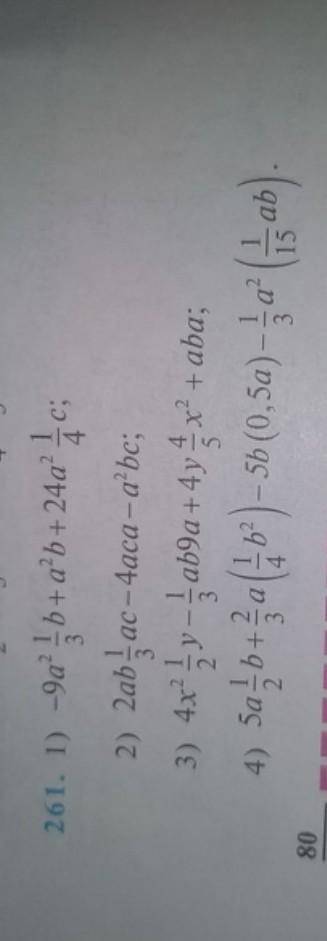 261. 1) −9a² 1/3 b + a²b + 24a² 1/4 c;
2) 2ab 1/3 ac − 4aca − a²bc;
3) 4x² 1/2 y − 1/3 ab9a + 4y 4/5 x² + aba;
4) 5a 1/2 b + 2/3 a(1/4 b²) − 5b(0,5a) − 1/3 a²(1/15 ab).
80